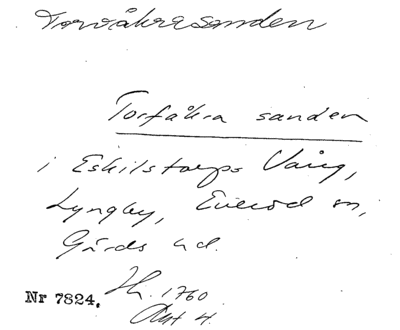 Torvåkrasanden
Torfåkra sanden
i Eskilstorps Vång,
Lyngby, Everöd sn,
Gärds hd.
Nr 7824. Jh. 1760
Akt 4.